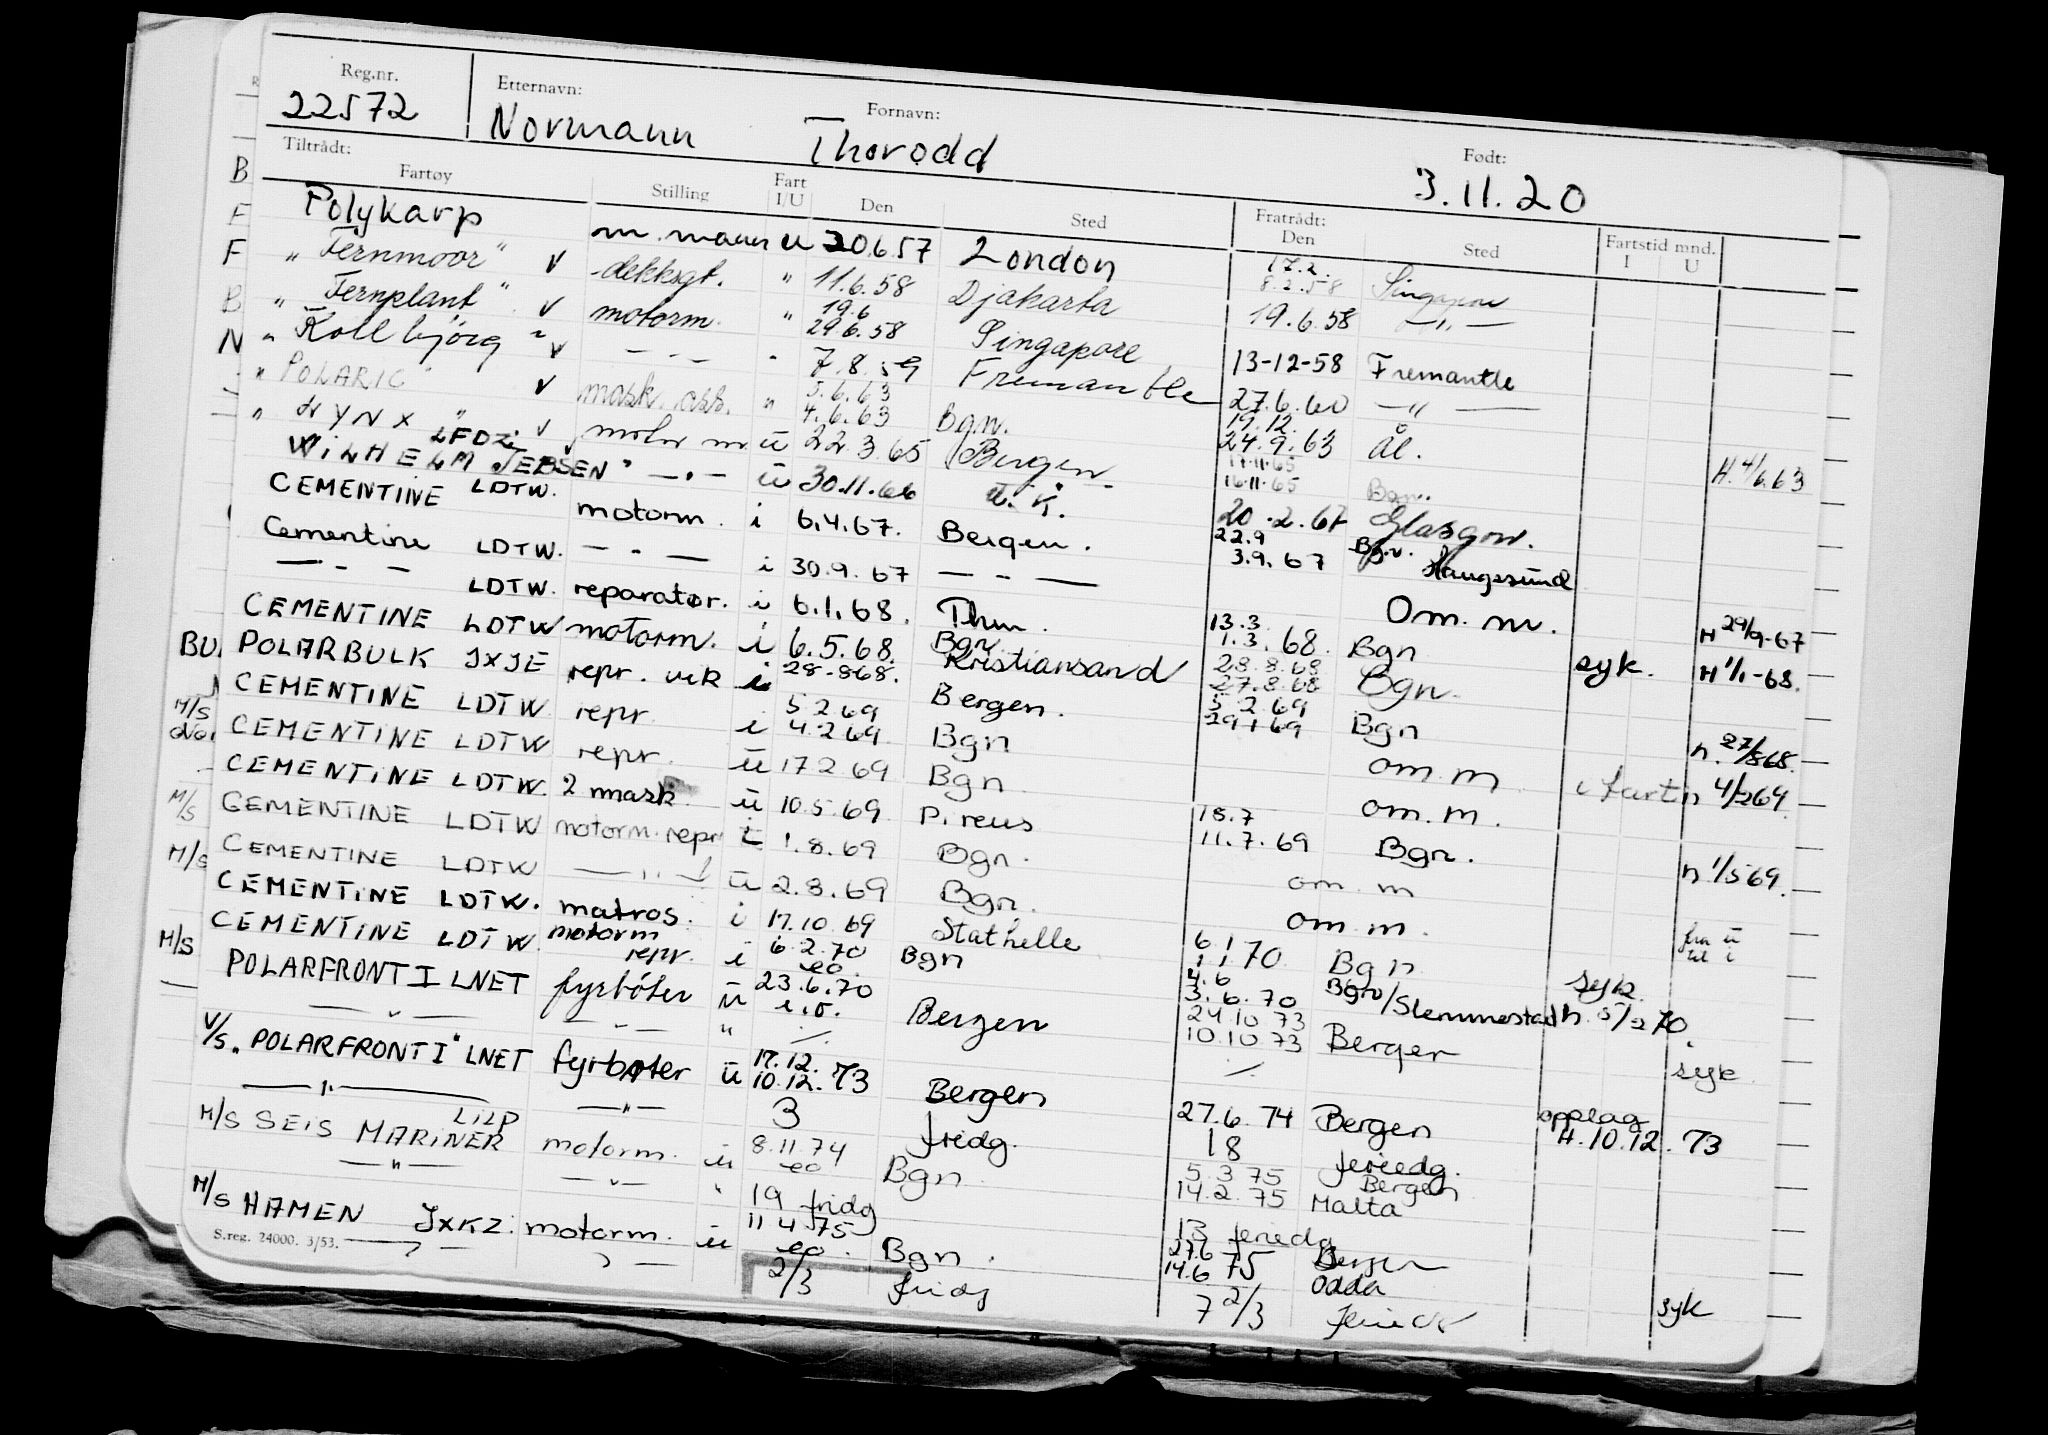 Reg.nr. Etternavn: Fornavn: Født:
22572 Normann Thorodd 3.11.20
Tiltrådt: Fratrådt: Fartstid mnd.
Fartøy Stilling Fart I/U Den Sted Den Sted I U
Polykarp m. mann u 20.6.57 London 17.2. 8.2.58 Singapore
" Fernmoor " v dekksgt. " 11.6.58 Djakarta 19.6.58 — " —
" Fernplant " v motorm. " 19.6 29.6.58 Singapore 13-12-58 Fremantle
" Kollbjörg " v — " — " 7.8.59 Fremantle 27.6.60 — " —
" POLARIC " v mask. ass. " 5.6.63 4.6.63 Bgn. 19.12. 24.9.63 Ål. H.4/6.63
" LYNX " LFDZ v motor m. ū 22.3.65 Bergen 17.11.65 16.11.65 Bgn.
WILHELM JEBSEN " — " — ū 30.11.66 d. K. 20.2.67 Glasgow.
CEMENTINE LDTW. motorm. i 6.4.67. Bergen. 22.9 3.9.67 Bgn. Haugesund
Cementine LDTW. — " — i 30.9.67 — " — Om. m. H 29/9-67
— " — LDTW. reparatør. i 6.1.68. Thm. 13.3. 1.3.68. Bgn syk. H 1/1-68.
CEMENTINE LDTW motorm. i 6.5.68. Bgn. Kristiansand 28.8.68 27.8.68 Bgn.
POLARBULK JXJE repr. vik i 28-868. Bergen. 5 2 69 29 1 69 Bgn n. 27/868.
CEMENTINE LDTW repr. i 5 2 69 4.2 69 Bgn om. m i fart n 4/269.
CEMENTINE LDTW repr. ū 17 2 69 Bgn om. m.
CEMENTINE LDTW. 2 mask. ū 10.5.69 Pireus 18.7 11.7.69 Bgn. n 1/5 69.
CEMENTINE LDTW motorm. repr i 1.8.69 Bgn. om. m
CEMENTINE LDTW — " — ū 2.8.69 Bgn. om. m. fra ū til i
CEMENTINE LDTW. matros. i 17.10 69 Stathelle 6 1 1 1 70 Bgn syk.
CEMENTINE LDTW. motorm repr. i 6.2.70 eo. Bgn 4.6 3.6.70 Bgn/Slemmestad n. 5/2 70.
POLARFRONT I LNET fyrböter ū 23.6.70 i.o. Bergen 24.10 73 10.10.73 Bergen syk
— " — — " — "
V/S "POLARFRONT I" LNET fyrbøter ū 17.12. 10.12.73 Bergen 27.6.74 Bergen opplag H.10.12.73
— " — — " — 3 fridg. 18 feriedg.
M/S SEIS MARINER LILP motorm. u 8.11.74 eo Bgn 5.3.75 14.2.75 Bergen Malta
— " — — " — " 19 fridg 13 feriedg
M/S HAMEN JXKZ. motorm. u 11 4 75 eo. Bgn. 27.6 14.6 75 Bergen Odda syk
2/3 fridg 7 2/3
S.reg. 24000. 3/53.
B
F
F
B
N
BU
M/S
M/S
M/S
M/S